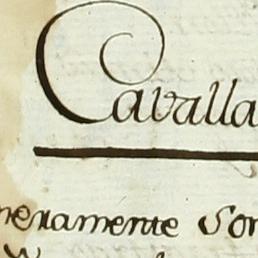 Cavalla
neramente Son